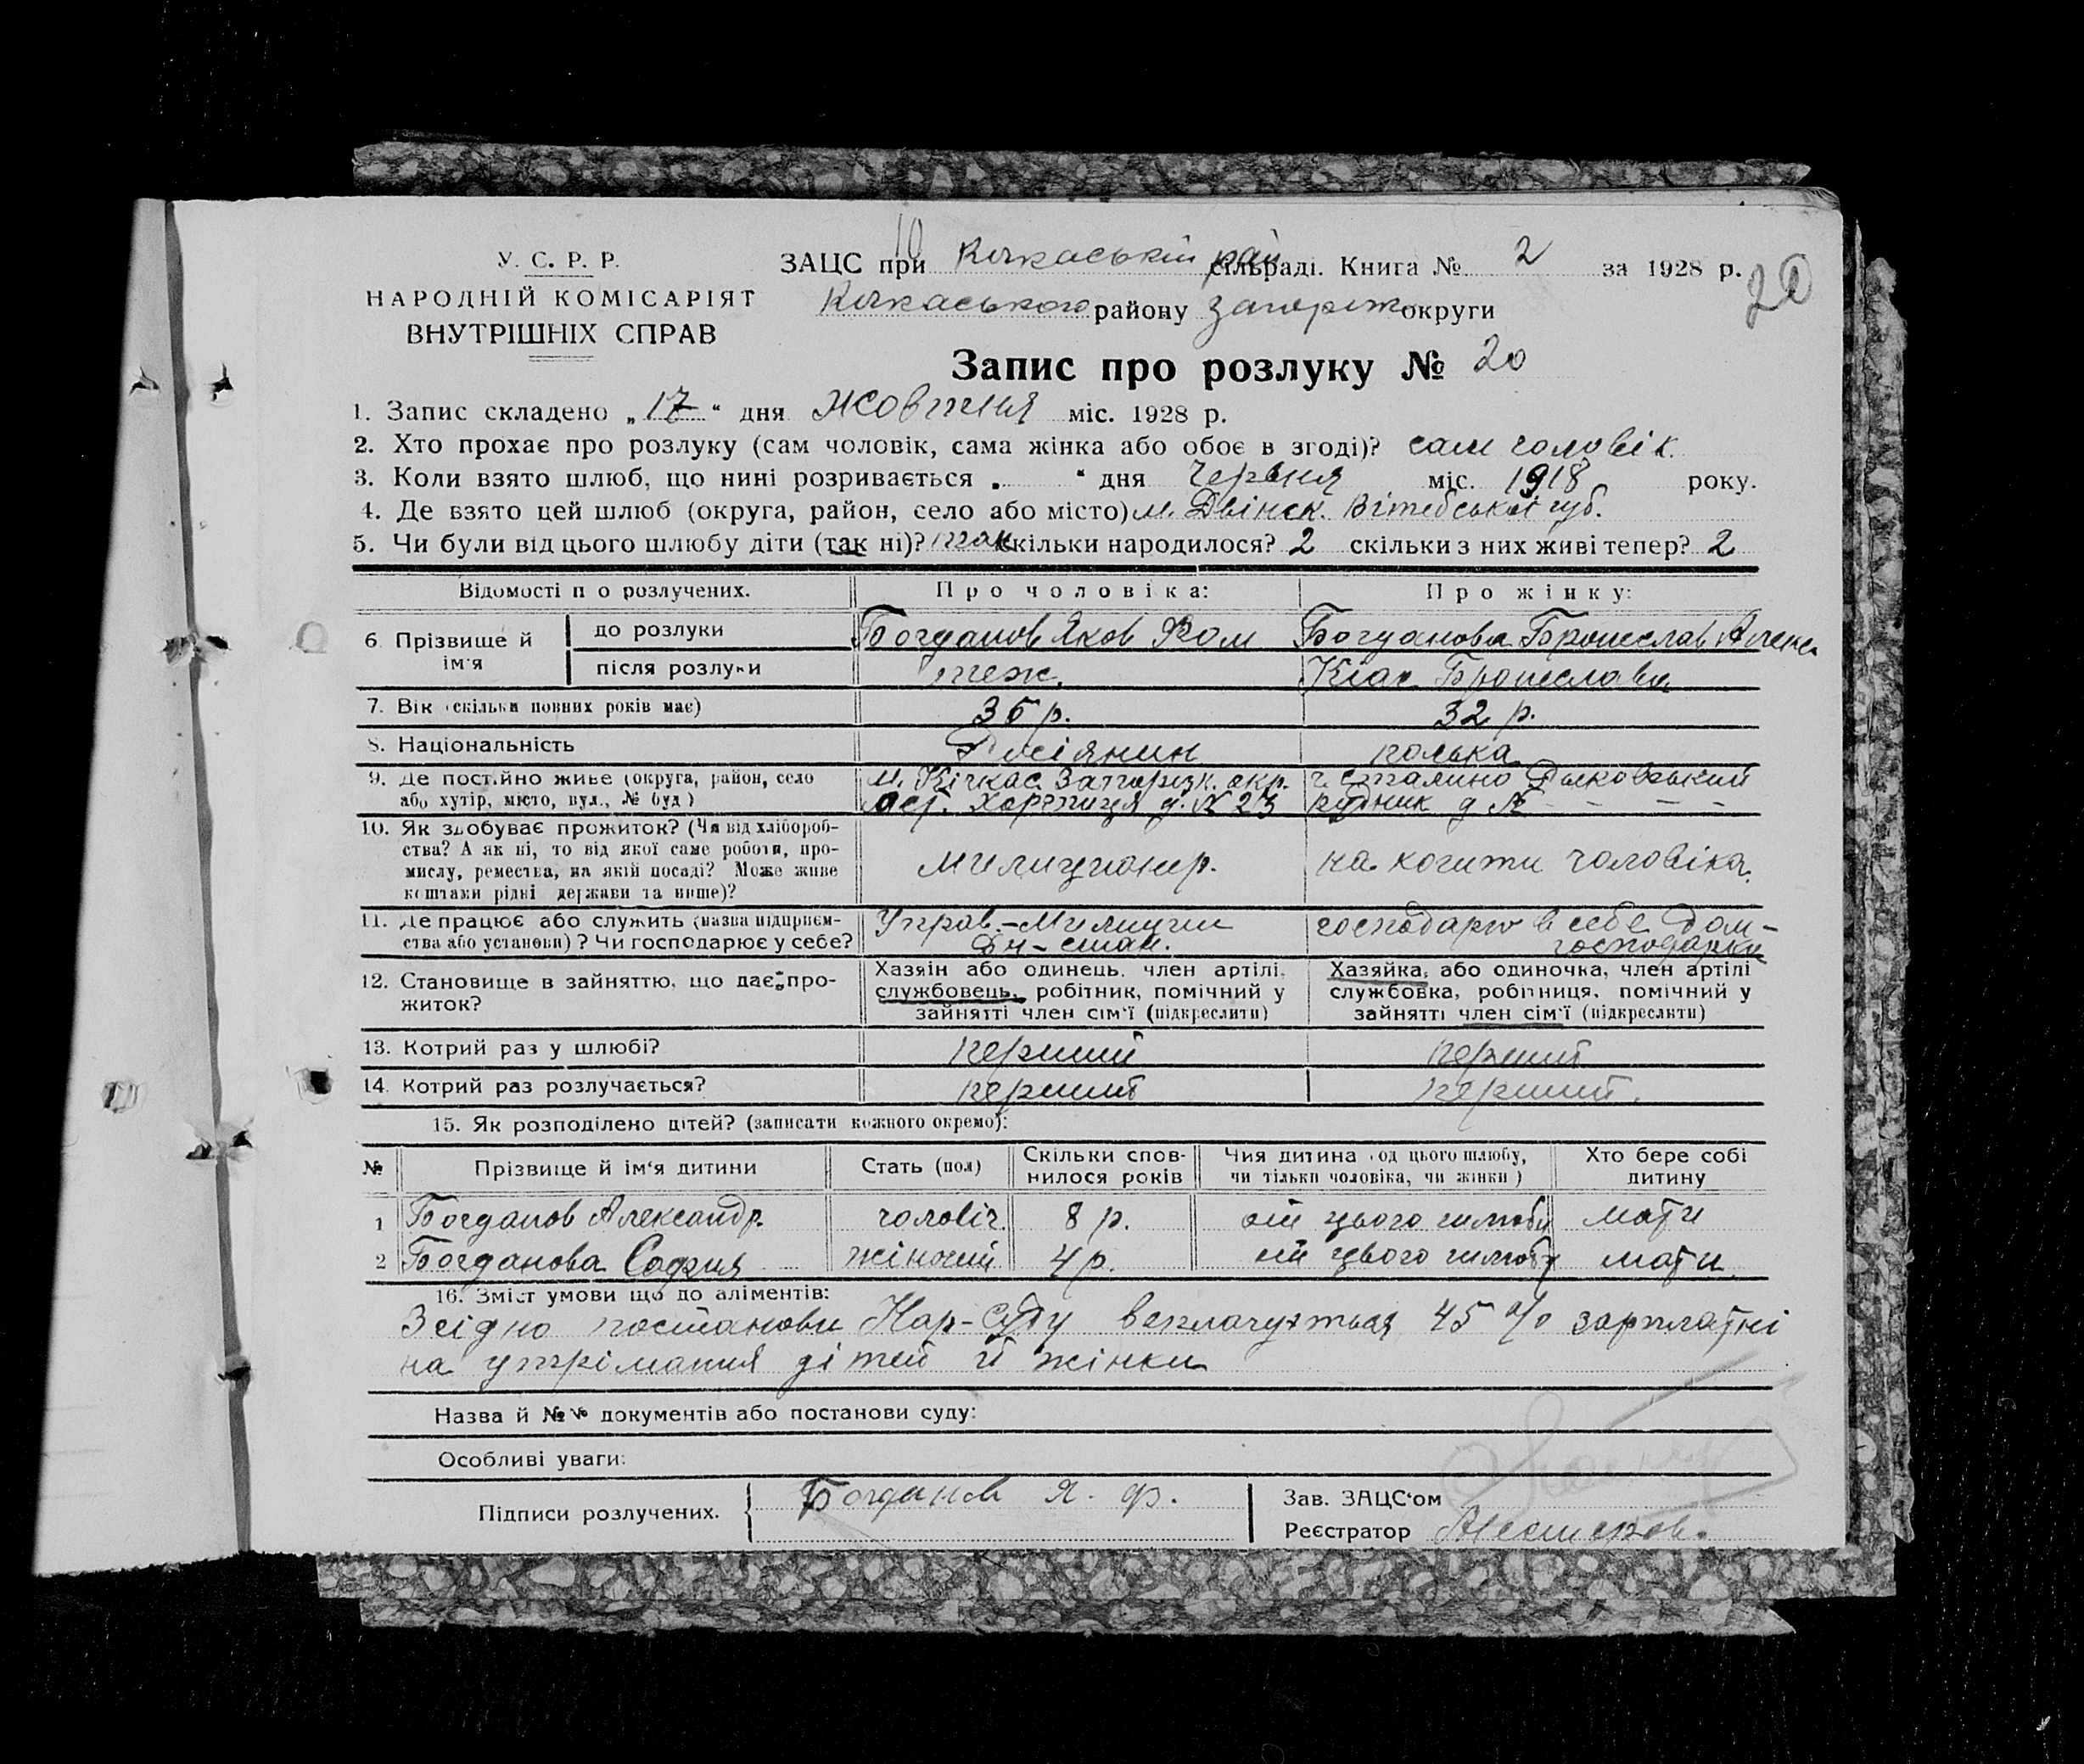 У. С. Р. Р.
НАРОДНІЙ КОМІСАРІЯТ
ВНУТРІШНІХ СПРАВ
10
ЗАЦС при Кічкаській рай сільраді. Книга № 2 за 1928 р.
20
Кічкаського району Запоріж округи
Запис про розлуку № 20
1. Запис складено „17“ дня Жовтня міс. 1928 р.
2. Хто прохає про розлуку (сам чоловік, сама жінка або обоє в згоді)? сам чоловік.
3. Коли взято шлюб, що нині розривається „ “ дня Червня міс. 1918 року.
4. Де взято цей шлюб (округа, район, село або місто) м. Двінск. Вітебської губ.
5. Чи були від цього шлюбу діти (так ні)? так скільки народилося? 2 скільки з них живі тепер? 2
Відомості п о розлучених. Про чоловіка: Про жінку:
6. Прізвище й ім'я
до розлуки Богданов Яков Фом Богданова Бронислав Алекс
після розлуки теж. Кіак Бронислава
7. Вік (скільки повних років має) 35 р. 32 р.
8. Національність Росіянин полька
9. Де постійно живе (округа, район, село м. Кічкас Запорізк. окр. г. Сталино
або хутір, місто, вул., № буд) Хортиця д. № 23 рудник д №
10. Як здобуває прожиток? (Чи від хлібороб-
ства? А як ні, то від якої саме роботи, про-
мислу, ремества, на якій посаді? Може живе
коштами рідні держави та инше)? милиционер. на кошти чоловіка.
11. Де працює або служить (назва підприєм- Управ.-Милиции господарю в себе дом-
ства або установи)? Чи господарює у себе? господарка
12. Становище в зайняттю, що дає про-
житок?
Хазяін або одинець, член артілі,
службовець, робітник, помічний у
зайнятті член сім'ї (підкреслити)
Хазяйка, або одиночка, член артілі
службовка, робітниця, помічний у
зайнятті член сім'ї (підкреслити)
13. Котрий раз у шлюбі? перший перший
14. Котрий раз розлучається? перший перший.
15. Як розподілено дітей? (записати кожного окремо):
№ Прізвище й ім'я дитини Стать (пол) Скільки спов-нилося років Чия дитина (од цього шлюбу, чи тільки чоловіка, чи жінки) Хто бере собі дитину
1 Богданов Александр. чоловіч. 8 р. від цього шлюбу мати
2 Богданова София жіночий 4 р. від цього шлюбу мати.
16. Зміст умови що до аліментів:
Згідно постанови Нар-Суду 45 % зарплатні
на утрімання дітей й жінки
Назва й №№ документів або постанови суду:
Особливі уваги:
Підписи розлучених. Богданов Я. Ф.
Зав. ЗАЦС'ом
Реєстратор